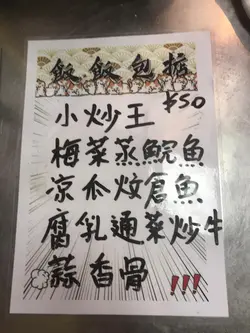 飯飯包撚
$50
小炒王
梅菜蒸鯇魚
凉瓜炆倉魚
腐乳通菜炒牛
蒜香骨!!!